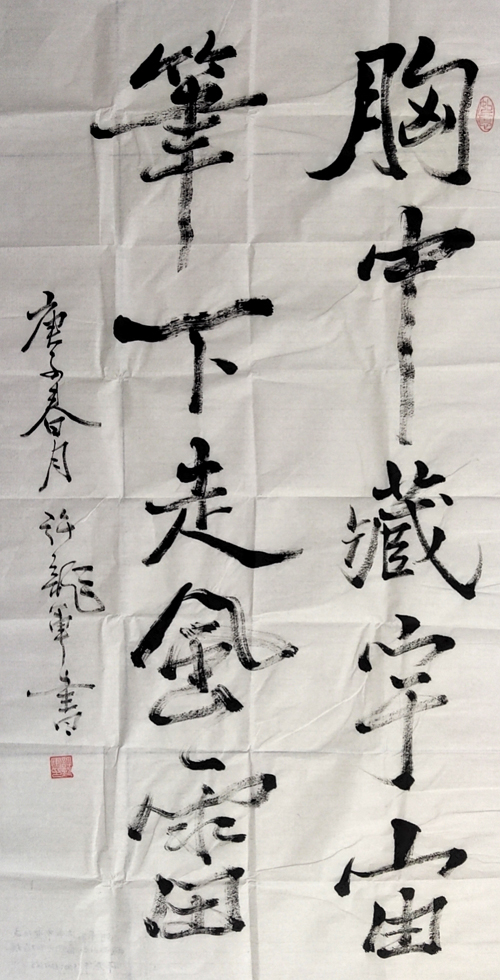 胸中藏宇宙
筆下走風雷
庚子春月 許龍軍書